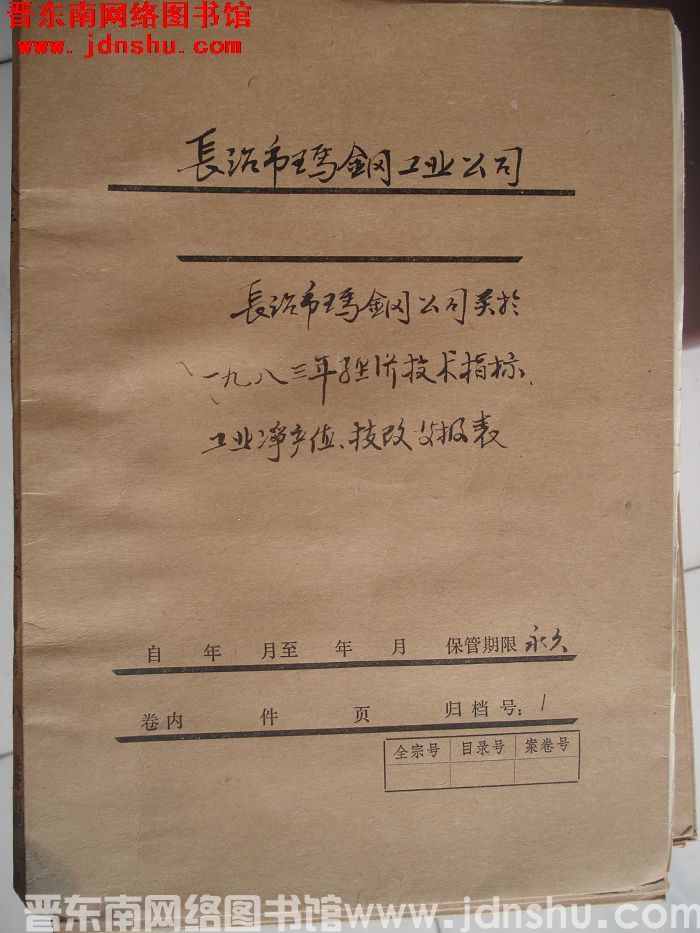 晋东南网络图书馆
www.jdnshu.com
長治市瑪鋼工业公司
長治市瑪鋼公司关於
一九八三年经济技术指标、
工业净产值、技改 报表
自 年 月至 年 月 保管期限 永久
卷内 件 页 归档号:1
全宗号 目录号 案卷号
晋东南网络图书馆www.jdnshu.com